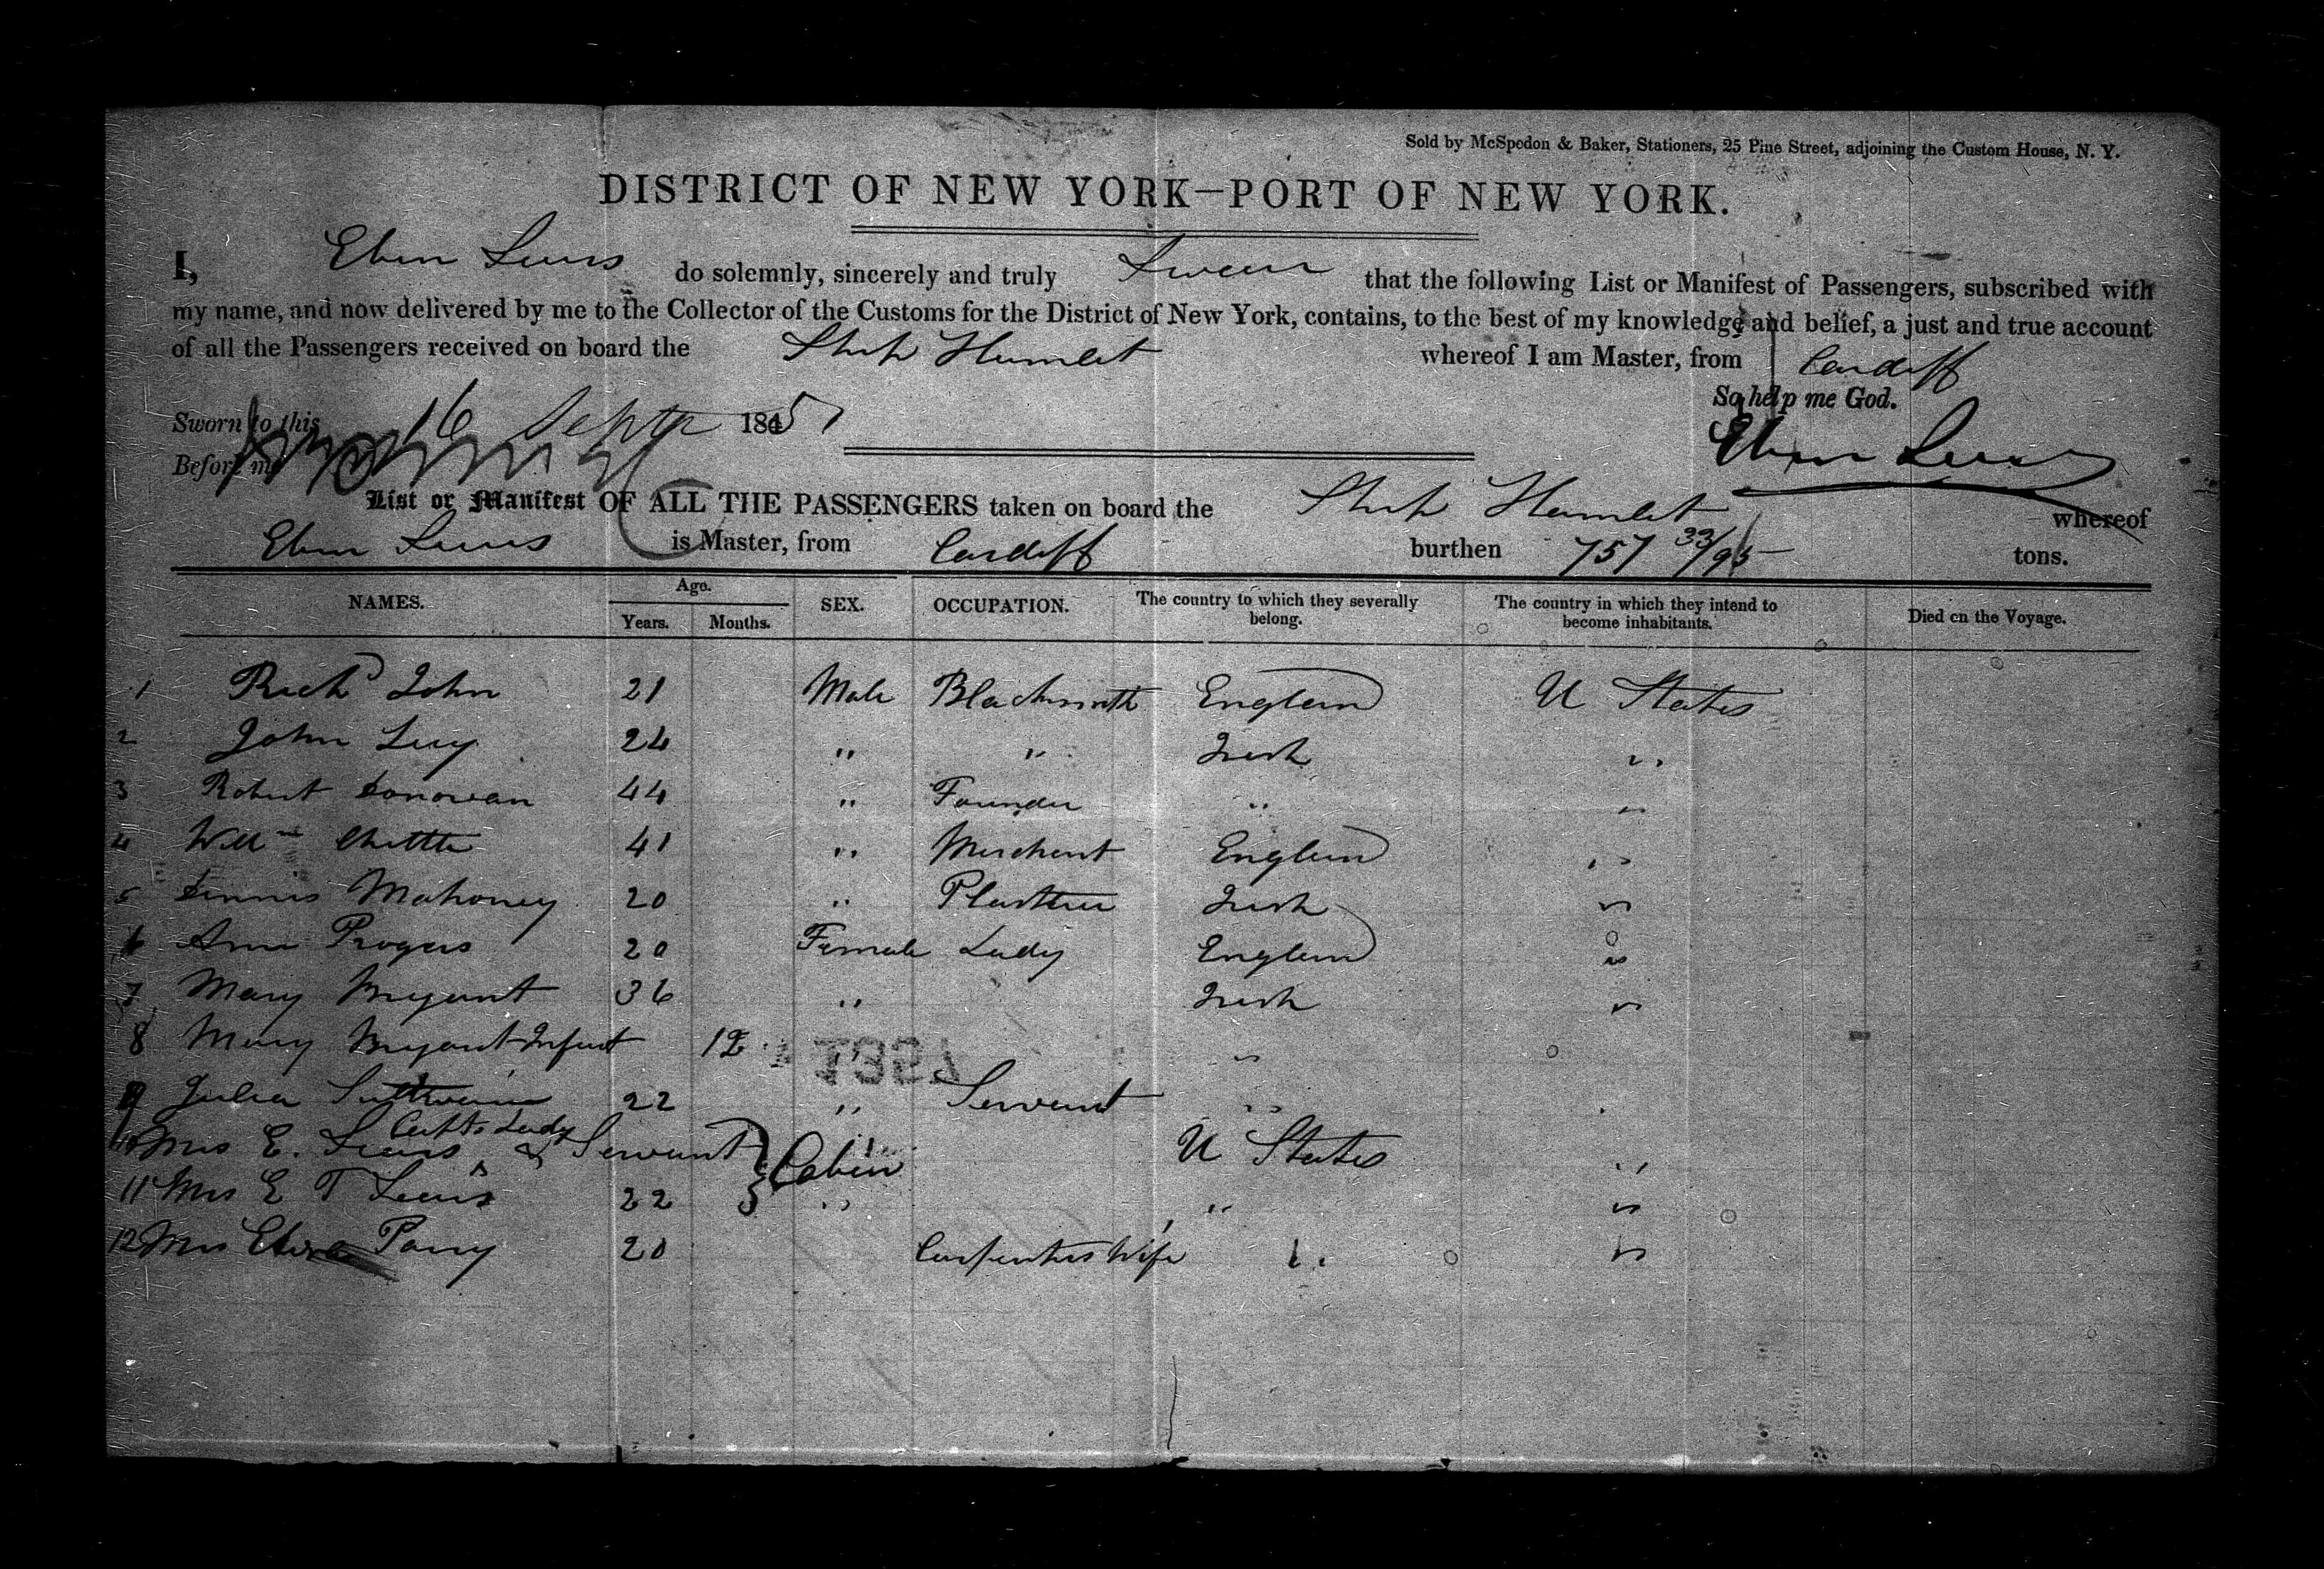 Sold by McSpedon & Baker, Stationers, 25 Pine Street, adjoining the Custom House, N. Y.
DISTRICT OF NEW YORK—PORT OF NEW YORK.
I, Eben Lewis do solemnly, sincerely and truly Swear that the following List or Manifest of Passengers, subscribed with
my name, and now delivered by me to the Collector of the Customs for the District of New York, contains, to the best of my knowledge and belief, a just and true account
of all the Passengers received on board the Ship Hamlet whereof I am Master, from Cardiff
So help me God.
Sworn to this 16 Septr 1851
Before me
Eben Lewis
List or Manifest OF ALL THE PASSENGERS taken on board the Ship Hamlet whereof
Eben Lewis is Master, from Cardiff burthen 757 33/95 tons.
NAMES. Age. Years. Months. SEX. OCCUPATION. The country to which they severally belong. The country in which they intend to become inhabitants. Died on the Voyage.
1 Richd John 21 Male Blacksmith England U States
2 John Lucy 24 " " Irish "
3 Robert Donovan 44 " Founder " "
4 Willm Chettle 41 " Merchant England "
5 Dennis Mahoney 20 " Plasterer Irish "
6 Ann Progers 20 Female Lady England "
7 Mary Bryant 36 " Irish "
8 Mary Bryant Infant 12 " "
1357
9 Julia 22 " Servant "
Capts Lady
10 Mrs E. Lewis & Servant Cabin U States "
11 Mrs E T Lewis 22 " " "
12 Mrs Parry 20 Carpenters Wife " "